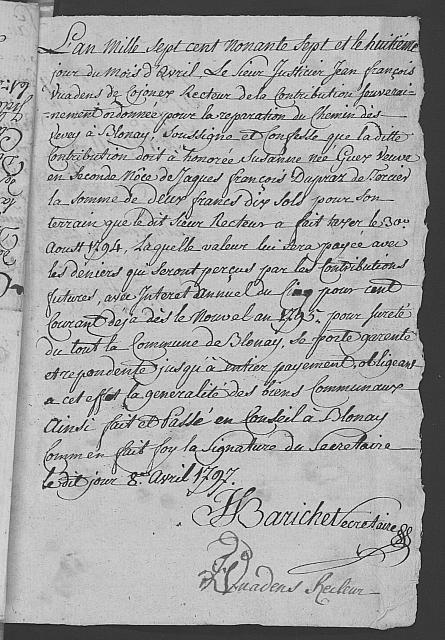 L'an Mille Sept cent nonante Sept et le huitième
jour du Mois d'Avril, Le Sieur Justicier Jean françois
Vuadens de Cojonex Recteur de la Contribution Souverai-
nement ordonnée pour la reparation du Chemin dès
Vevey à Blonay, Soussigné et Confesse que la ditte
Contribution doit à honorée Susanne née Guex Veuve
en Seconde Nôce de Jaques françois Dupraz de
la Somme de deux francs dix Sols pour Son
terrain que le dit Sieur Recteur a fait taxer le 30e
Aoust 1794, Laquelle valeur lui Sera payée avec
les deniers qui Seront perçus par les Contributions
futures, avec Interet annuel du Cinq pour cent
Courant déja dès le Nouvel an 1795. pour Sureté
du tout la Commune de Blonay, Se porte garente
et repondente jusqu'à entier payement, obligeant
a cet effet la generalité des biens Communaux
Ainsi fait et Passé en Conseil à Blonay
Comm'en fait foy la Signature du Secretaire
le dit jour 8e Avril 1797.
Barichet Secretaire
Vuadens Recteur